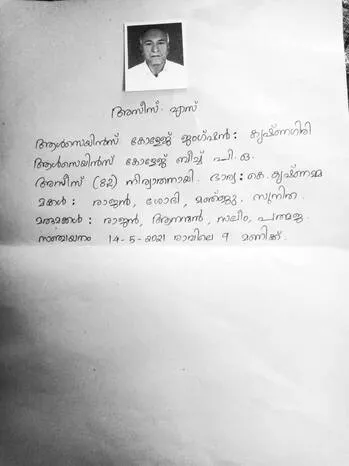 അസീസ്. എസ്
ആൾസെയിന്റ്സ് കോളേജ് ജംഗ്ഷൻ : കൃഷ്ണഗിരി
ആൾസെയിന്റ്സ് കോളേജ് ബീച്ച് പി. ഒ.
അസീസ് (82) നിര്യാതനായി. ഭാര്യ : കെ. കൃഷ്ണമ്മ
മക്കൾ : രാജൻ, ശോഭി, മഞ്ജു. സുനിത.
മരുമക്കൾ : രാജൻ, ആനന്ദൻ, സലീം, പത്മജ.
സഞ്ചയനം 14-5-2021 രാവിലെ 9 മണിക്ക്.